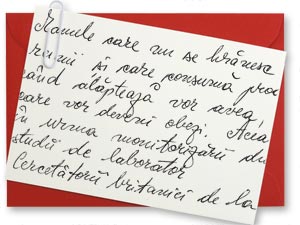 Mamele care nu se hrănesc
și care consumă
când alăptează vor avea
care vor deveni obezi. Acea
în urma monitorizării
studii de laborator
Cercetătorii britanici de la